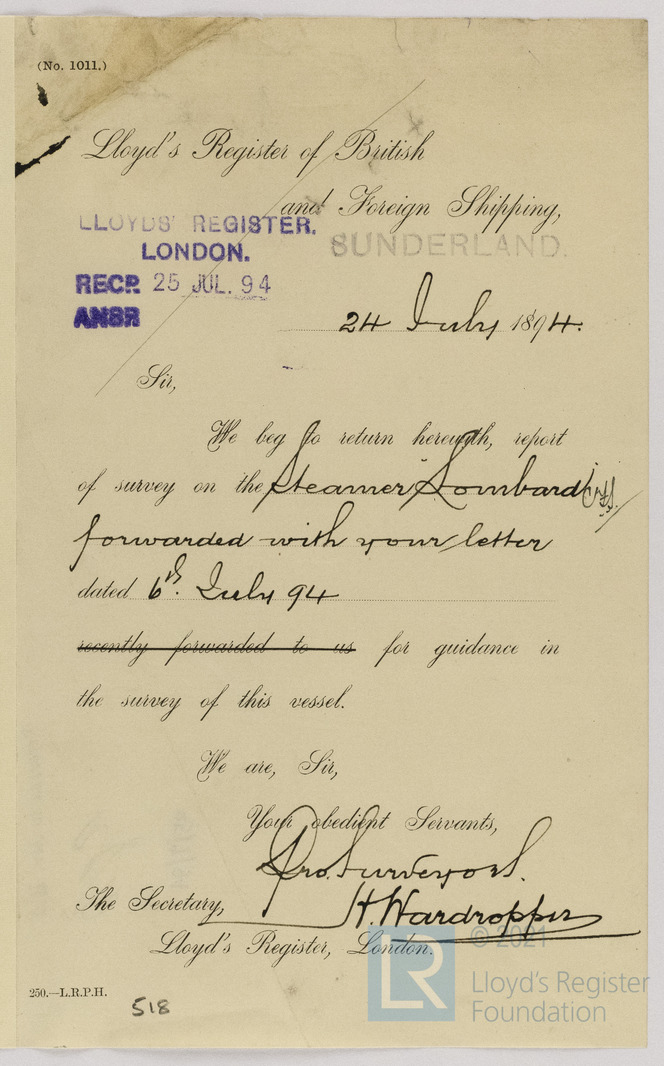 (No. 1011.)
Lloyd's Register of British
and Foreign Shipping,
LLOYDS' REGISTER.
LONDON.
SUNDERLAND.
RECD. 25 JUL. 94
ANSR
24 July 1894.
Sir,
We beg to return herewith, report
of survey on the Steamer "Lombard"
forwarded with your letter
dated 6th. July 94
recently forwarded to us for guidance in
the survey of this vessel.
We are, Sir,
Your obedient Servants,
Pro. Surveyors.
The Secretary,
H. Wardropper
Lloyd's Register, London.
© 2021
LR
Lloyd's Register
Foundation
250.—L.R.P.H.
518